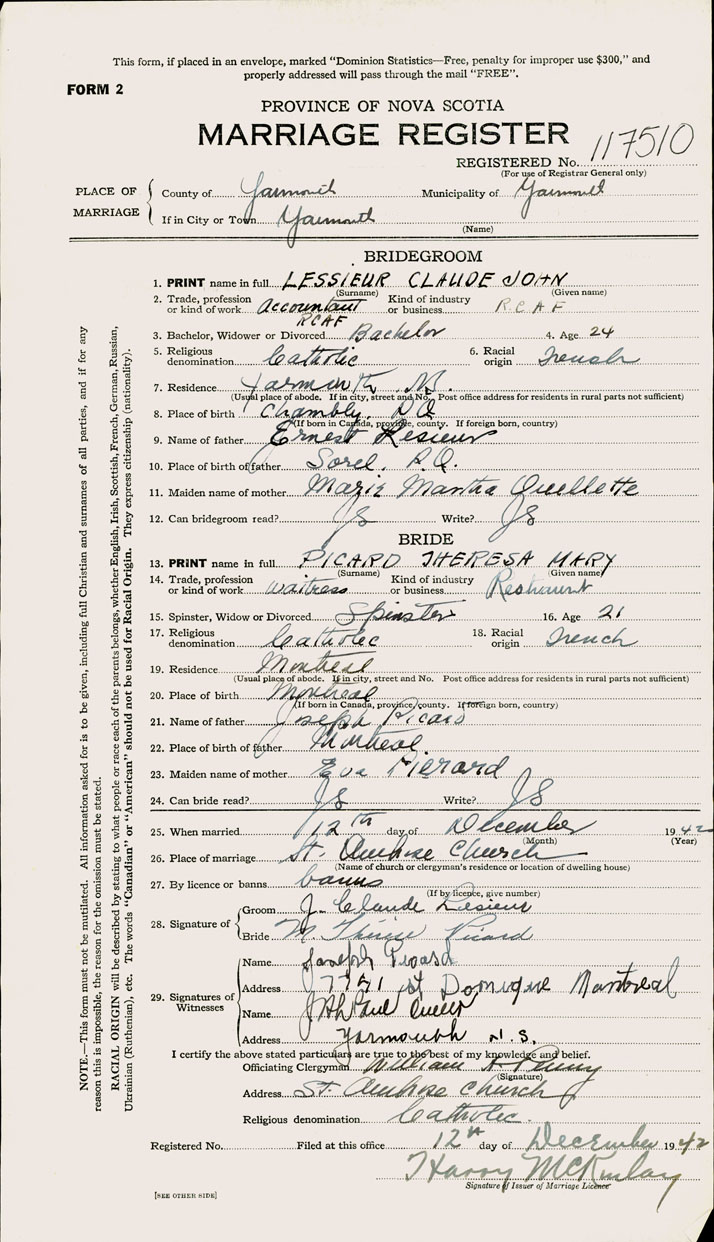 This form, if placed in an envelope, marked "Dominion Statistics—Free, penalty for improper use $300," and
properly addressed will pass through the mail "FREE".
FORM 2
PROVINCE OF NOVA SCOTIA
MARRIAGE REGISTER
REGISTERED No. 117510
(For use of Registrar General only)
PLACE OF MARRIAGE
County of Yarmouth Municipality of Yarmouth
If in City or Town Yarmouth
(Name)
BRIDEGROOM
1. PRINT name in full LESSIEUR CLAUDE JOHN
(Surname) (Given name)
2. Trade, profession or kind of work Accountant RCAF Kind of industry or business RCAF
3. Bachelor, Widower or Divorced Bachelor 4. Age 24
5. Religious denomination Catholic 6. Racial origin French
7. Residence Yarmouth N.S.
(Usual place of abode. If in city, street and No. Post office address for residents in rural parts not sufficient)
8. Place of birth Chambly, P.Q.
(If born in Canada, province, county. If foreign born, country)
9. Name of father Ernest Lesieur
10. Place of birth of father Sorel, P.Q.
11. Maiden name of mother Marie Martha Ouellette
12. Can bridegroom read? Write?
BRIDE
13. PRINT name in full PICARD THERESA MARY
(Surname) (Given name)
14. Trade, profession or kind of work waitress Kind of industry or business
15. Spinster, Widow or Divorced Spinster 16. Age 21
17. Religious denomination Catholic 18. Racial origin French
19. Residence Montreal
(Usual place of abode. If in city, street and No. Post office address for residents in rural parts not sufficient)
20. Place of birth Montreal
(If born in Canada, province, county. If foreign born, country)
21. Name of father Joseph Picard
22. Place of birth of father Montreal
23. Maiden name of mother Eva Pierard
24. Can bride read? Write?
25. When married 12th day of December 1942
(Month) (Year)
26. Place of marriage St. Ambrose Church
(Name of church or clergyman's residence or location of dwelling house)
27. By licence or banns banns
(If by licence, give number)
28. Signature of
Groom J. Claude Lesieur
Bride M. Thérèse Picard
29. Signatures of Witnesses
Name Joseph Picard
Address St Domique Montreal
Name Paul
Address Yarmouth N.S.
I certify the above stated particulars are true to the best of my knowledge and belief.
Officiating Clergyman William Penny
(Signature)
Address St. Ambrose Church
Religious denomination Catholic
Registered No. Filed at this office 12th day of December 1942
Harry McKinlay
Signature of Issuer of Marriage Licence
[SEE OTHER SIDE]
NOTE.—This form must not be mutilated. All information asked for is to be given, including full Christian and surnames of all parties, and if for any
reason this is impossible, the reason for the omission must be stated.
RACIAL ORIGIN will be described by stating to what people or race each of the parents belongs, whether English, Irish, Scottish, French, German, Russian,
Ukrainian (Ruthenian), etc. The words "Canadian" or "American" should not be used for Racial Origin. They express citizenship (nationality).